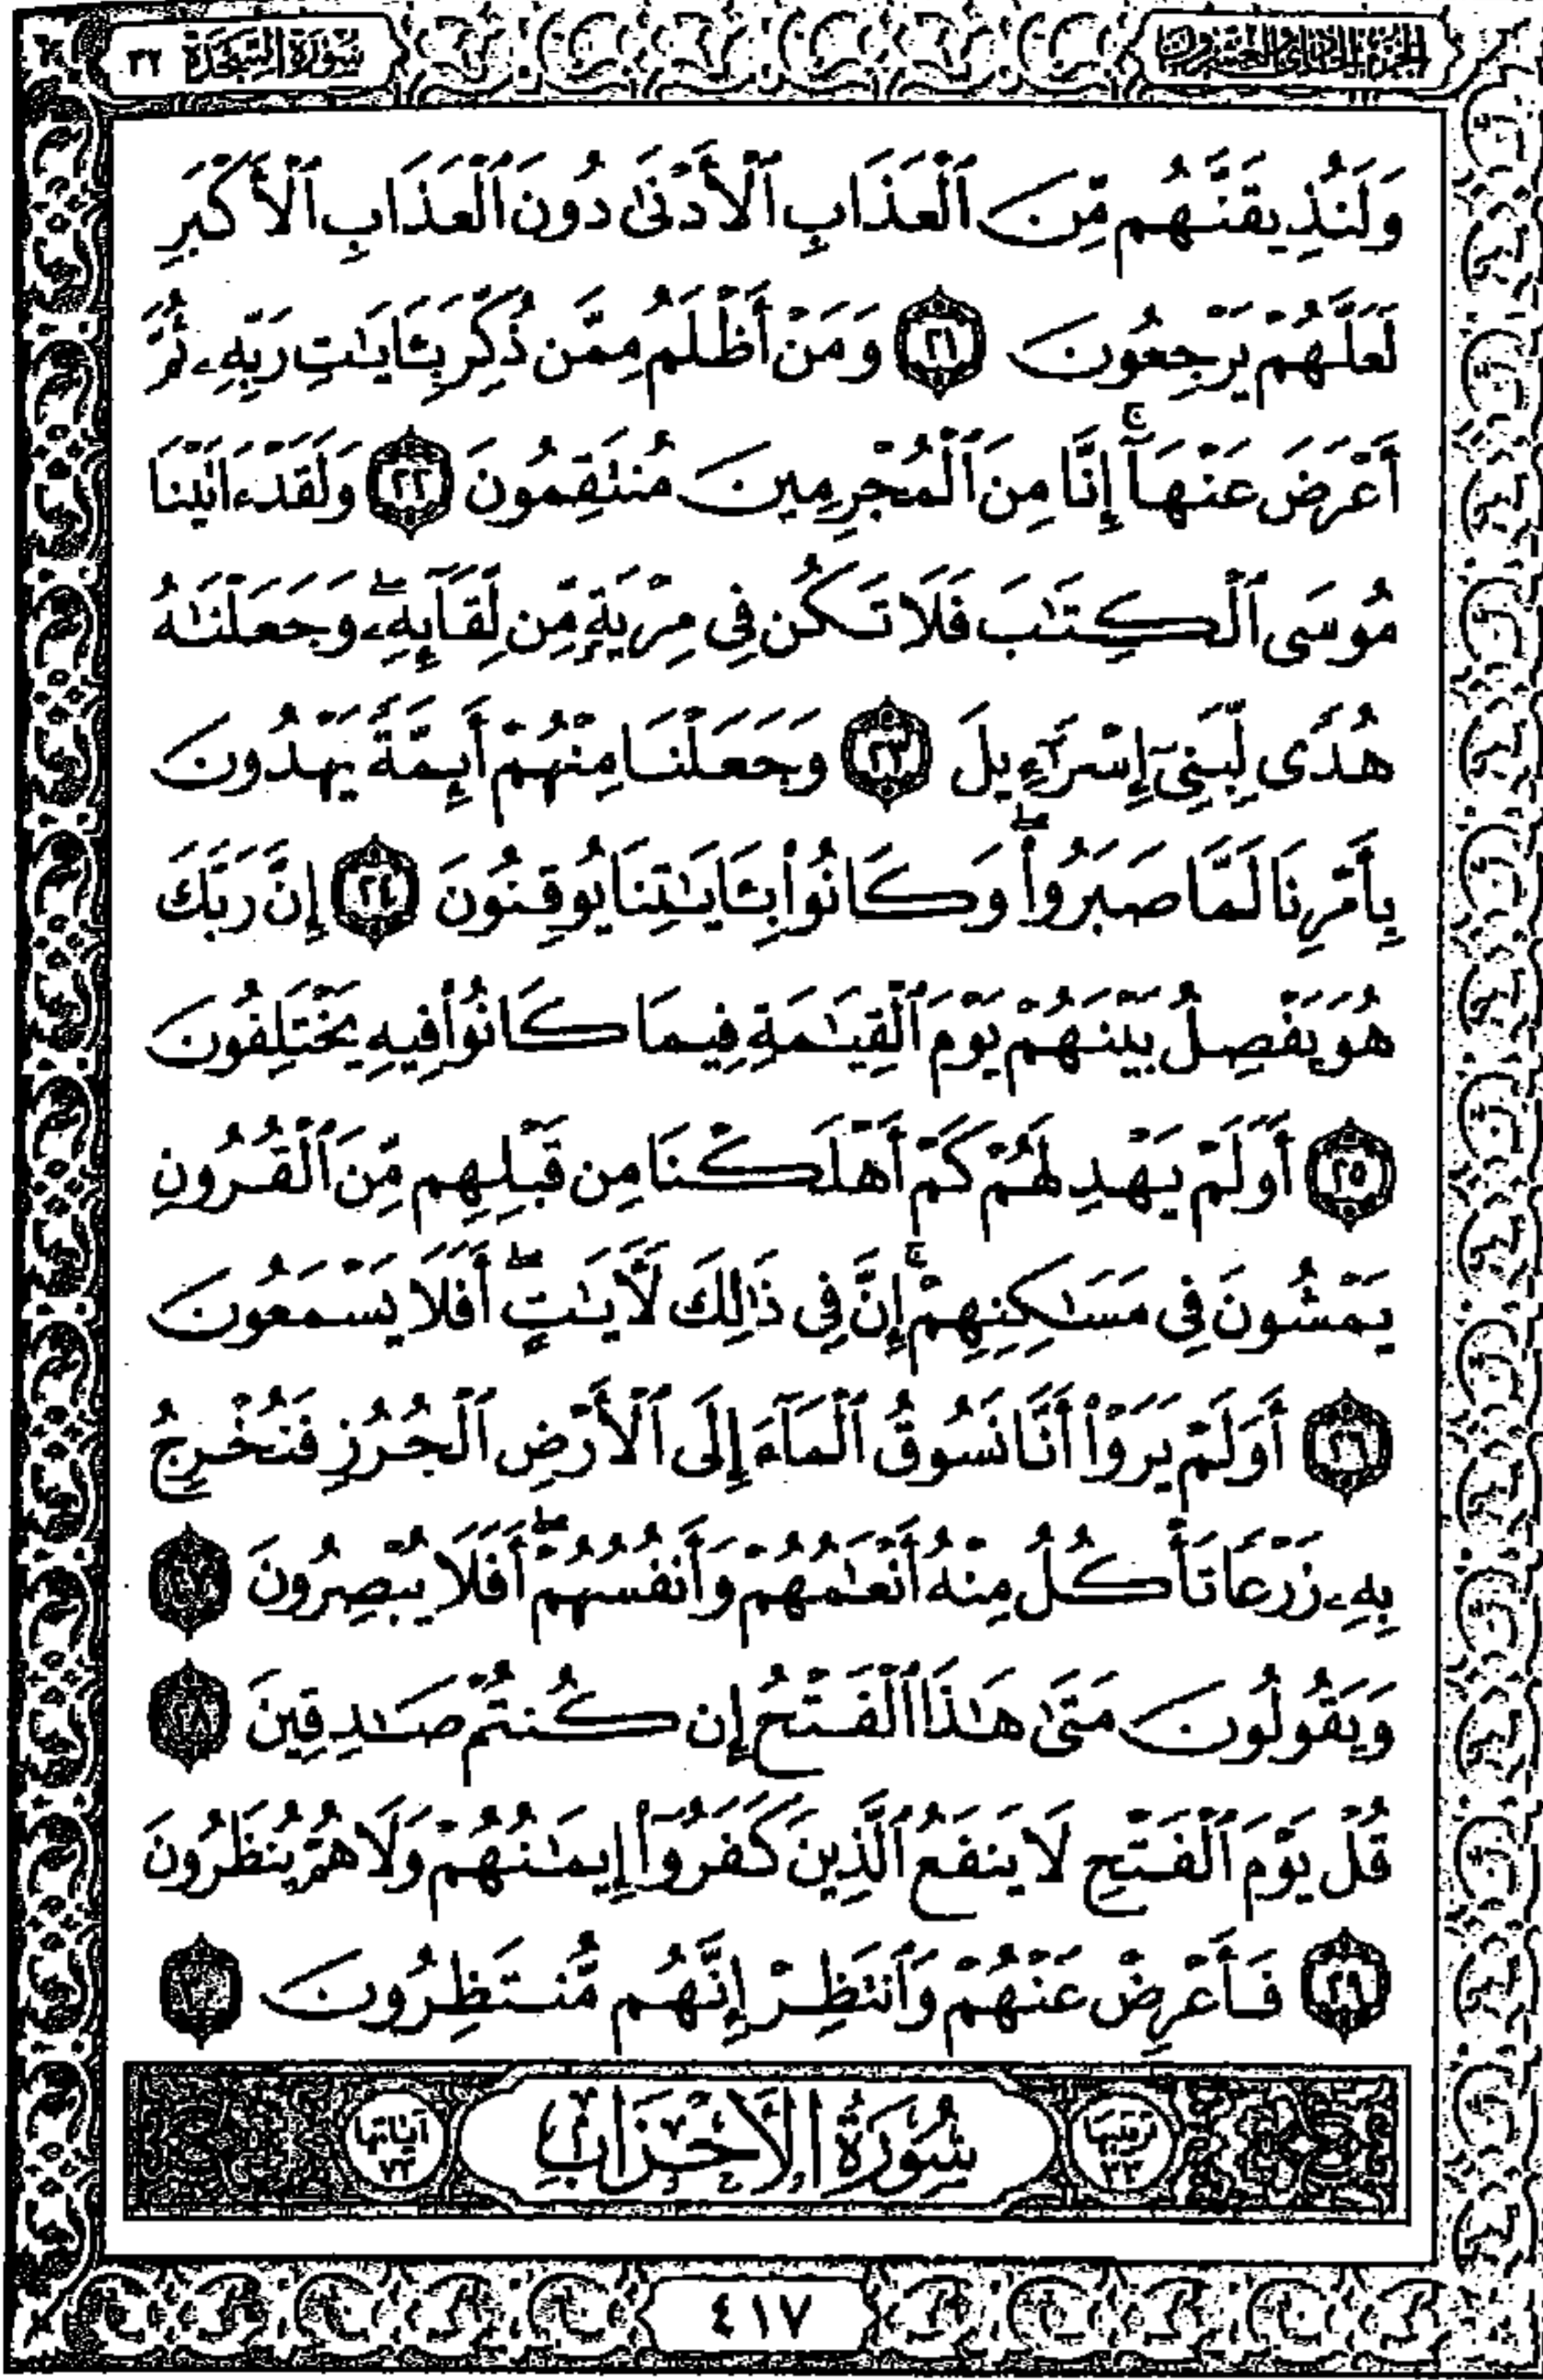 الجزء الحادي والعشرون
سُورَةُ السَّجْدَةِ ٣٢
وَلَنُذِيقَنَّهُم مِّنَ ٱلْعَذَابِ ٱلْأَدْنَىٰ دُونَ ٱلْعَذَابِ ٱلْأَكْبَرِ
لَعَلَّهُمْ يَرْجِعُونَ ٢١ وَمَنْ أَظْلَمُ مِمَّن ذُكِّرَ بِـَٔايَـٰتِ رَبِّهِۦ ثُمَّ
أَعْرَضَ عَنْهَآ ۚ إِنَّا مِنَ ٱلْمُجْرِمِينَ مُنتَقِمُونَ ٢٢ وَلَقَدْ ءَاتَيْنَا
مُوسَى ٱلْكِتَـٰبَ فَلَا تَكُن فِى مِرْيَةٍ مِّن لِّقَآئِهِۦ ۖ وَجَعَلْنَـٰهُ
هُدًى لِّبَنِىٓ إِسْرَٰٓءِيلَ ٢٣ وَجَعَلْنَا مِنْهُمْ أَئِمَّةً يَهْدُونَ
بِأَمْرِنَا لَمَّا صَبَرُوا۟ ۖ وَكَانُوا۟ بِـَٔايَـٰتِنَا يُوقِنُونَ ٢٤ إِنَّ رَبَّكَ
هُوَ يَفْصِلُ بَيْنَهُمْ يَوْمَ ٱلْقِيَـٰمَةِ فِيمَا كَانُوا۟ فِيهِ يَخْتَلِفُونَ
٢٥ أَوَلَمْ يَهْدِ لَهُمْ كَمْ أَهْلَكْنَا مِن قَبْلِهِم مِّنَ ٱلْقُرُونِ
يَمْشُونَ فِى مَسَـٰكِنِهِمْ ۚ إِنَّ فِى ذَٰلِكَ لَـَٔايَـٰتٍ ۖ أَفَلَا يَسْمَعُونَ
٢٦ أَوَلَمْ يَرَوْا۟ أَنَّا نَسُوقُ ٱلْمَآءَ إِلَى ٱلْأَرْضِ ٱلْجُرُزِ فَنُخْرِجُ
بِهِۦ زَرْعًا تَأْكُلُ مِنْهُ أَنْعَـٰمُهُمْ وَأَنفُسُهُمْ ۖ أَفَلَا يُبْصِرُونَ ٢٧
وَيَقُولُونَ مَتَىٰ هَـٰذَا ٱلْفَتْحُ إِن كُنتُمْ صَـٰدِقِينَ ٢٨
قُلْ يَوْمَ ٱلْفَتْحِ لَا يَنفَعُ ٱلَّذِينَ كَفَرُوٓا۟ إِيمَـٰنُهُمْ وَلَا هُمْ يُنظَرُونَ
٢٩ فَأَعْرِضْ عَنْهُمْ وَٱنتَظِرْ إِنَّهُم مُّنتَظِرُونَ ٣٠
ترتيبها ٣٣ سُورَةُ الأَحْزَابِ آياتها ٧٣
٤١٧